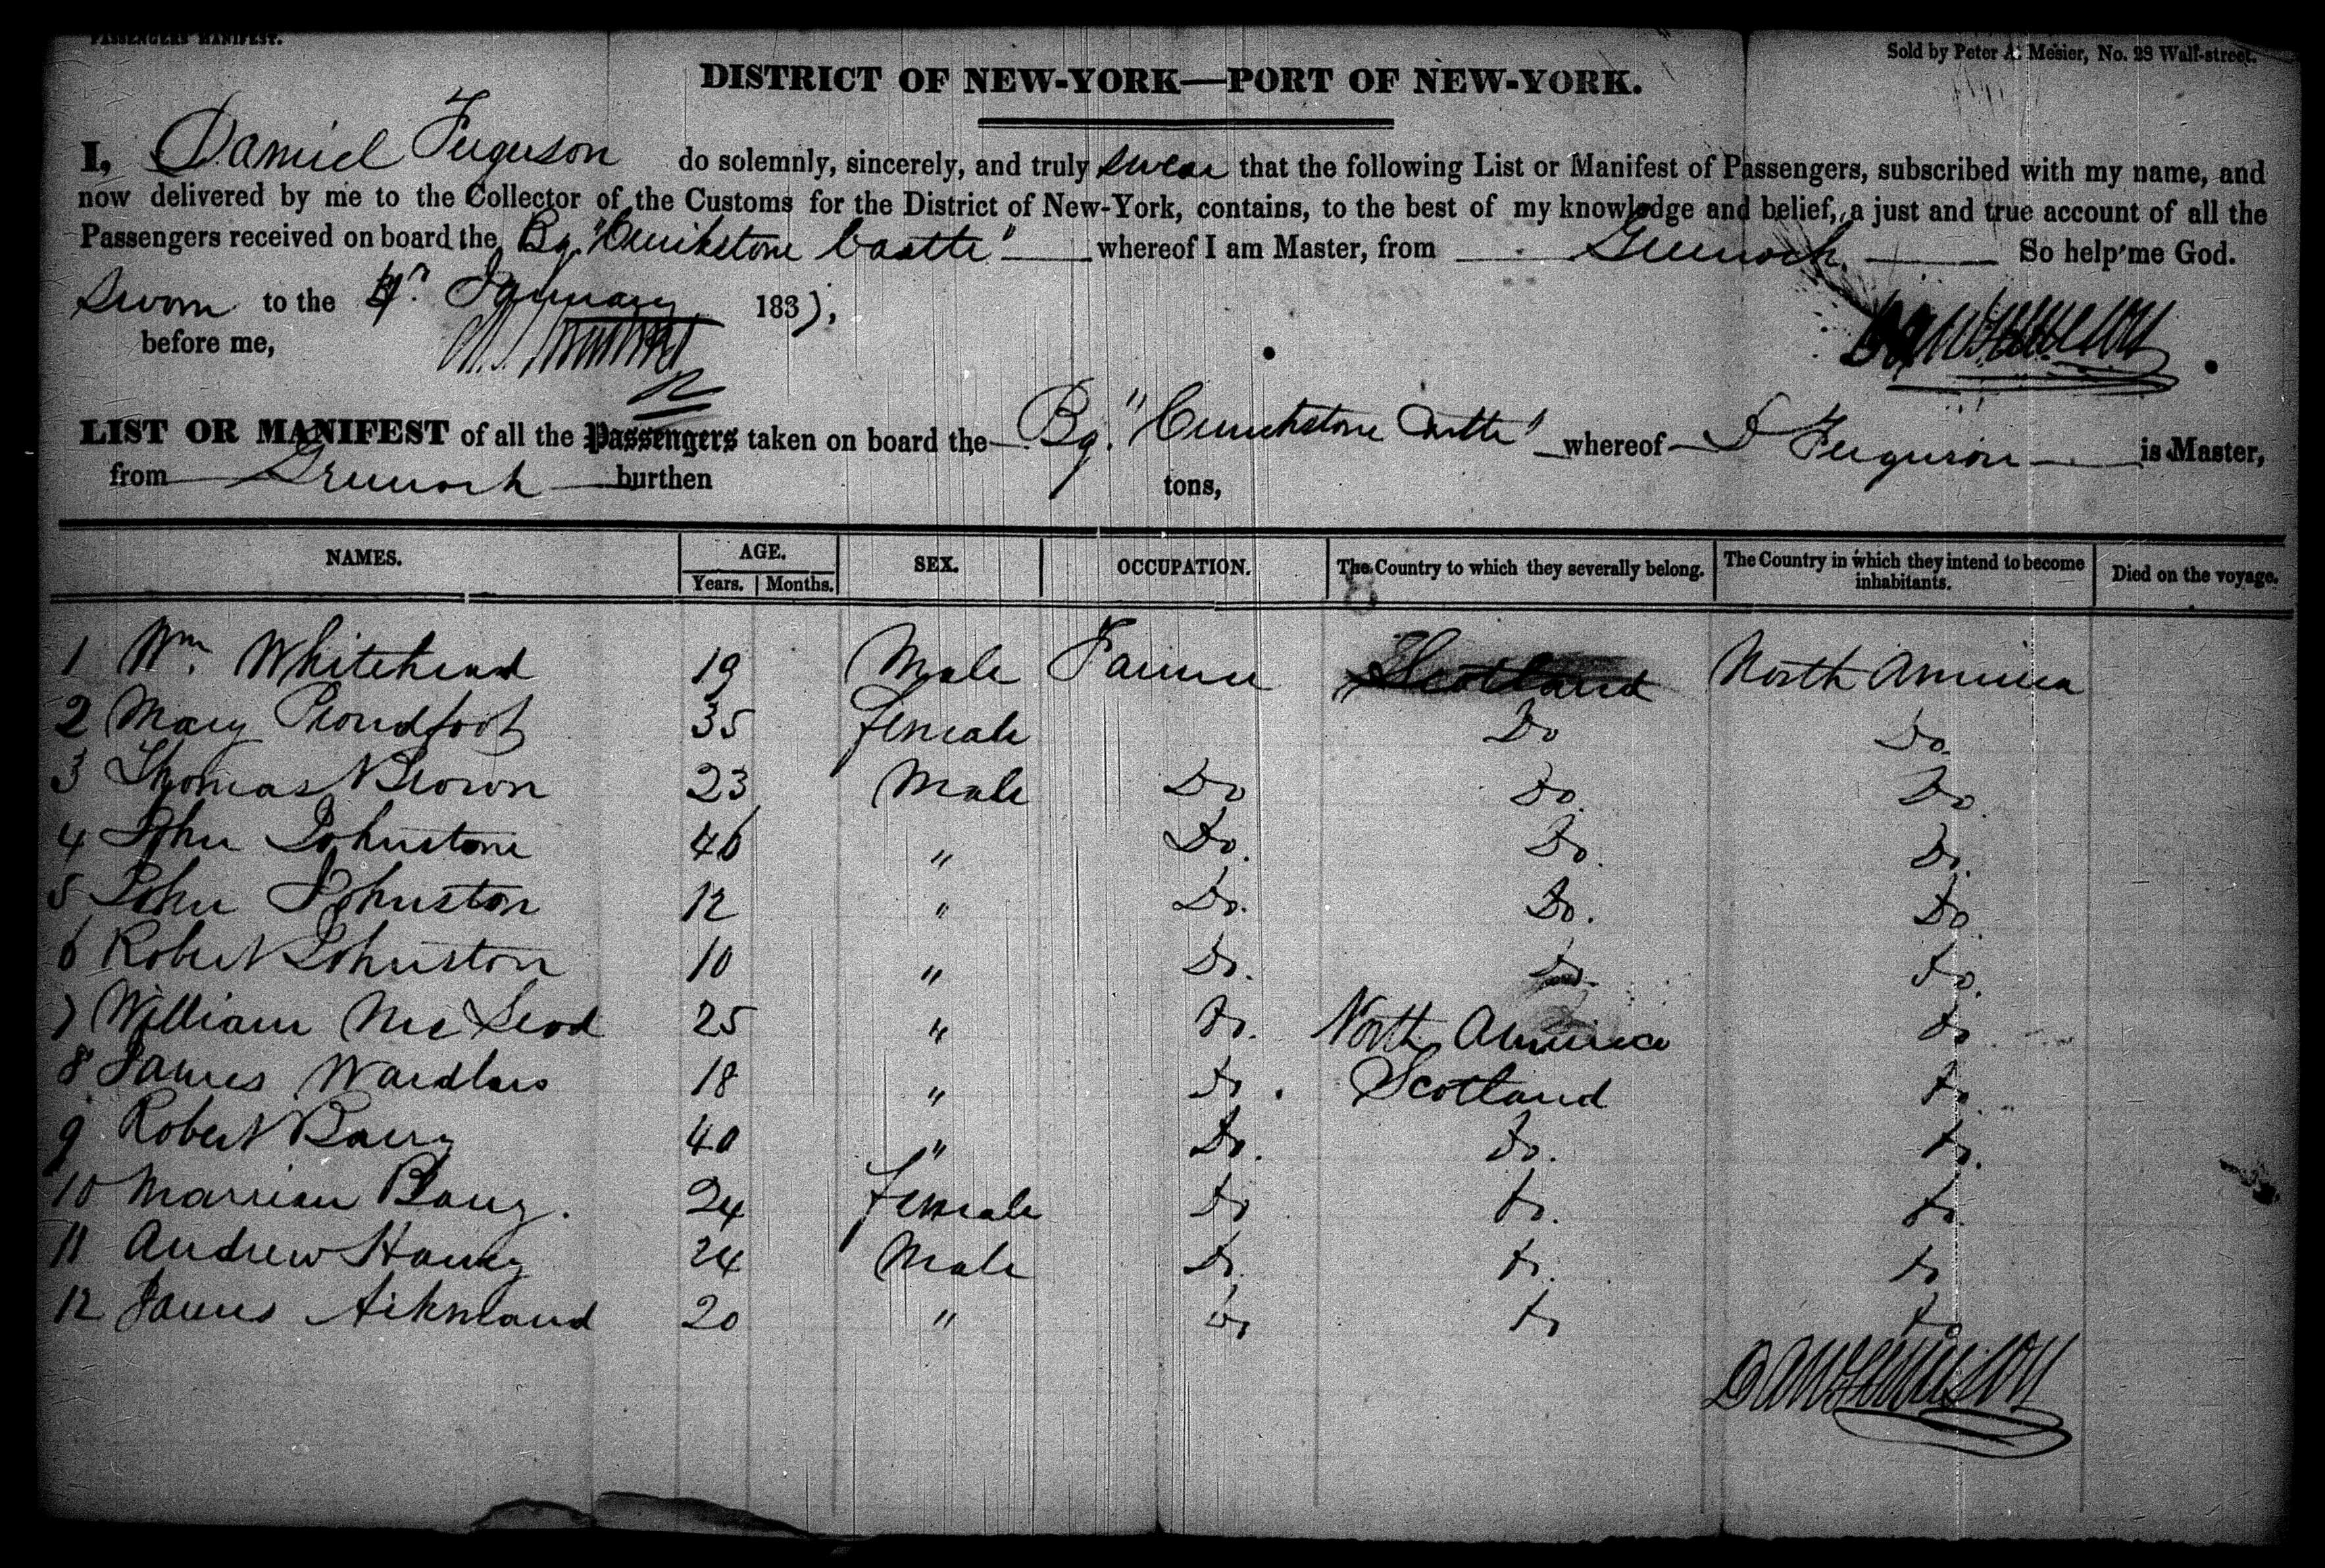 PASSENGERS' MANIFEST.
Sold by Peter A. Mesier, No. 28 Wall-street.
DISTRICT OF NEW-YORK—PORT OF NEW-YORK.
I, Daniel Ferguson do solemnly, sincerely, and truly swear that the following List or Manifest of Passengers, subscribed with my name, and
now delivered by me to the Collector of the Customs for the District of New-York, contains, to the best of my knowledge and belief, a just and true account of all the
Passengers received on board the Bg. "Cruikstone Castle" whereof I am Master, from Greenock So help me God.
Sworn to the January 1837,
before me,
LIST OR MANIFEST of all the Passengers taken on board the Bg. "Cruickstone Castle" whereof D Ferguson is Master,
from Greenock burthen tons,
NAMES. AGE. SEX. OCCUPATION. The Country to which they severally belong. The Country in which they intend to become inhabitants. Died on the voyage.
Years. Months.
1 Wm. Whitehead 19 Male Farmer Scotland North America
2 Mary Proudfoot 35 female Do Do
3 Thomas Brown 23 Male Do Do. Do
4 John Johnstone 46 " Do. Do. Do.
5 John Johnston 12 " Do. Do. Do
6 Robert Johnston 10 " Do. Do. Do.
7 William McLeod 25 " Do. North America Do
8 James Wardlaw 18 " Do. Scotland Do.
9 Robert 40 " Do. Do. Do.
10 24 female Do Do. Do.
11 Andrew 24 Male Do. Do. Do
12 James Aikmand 20 " Do Do Do